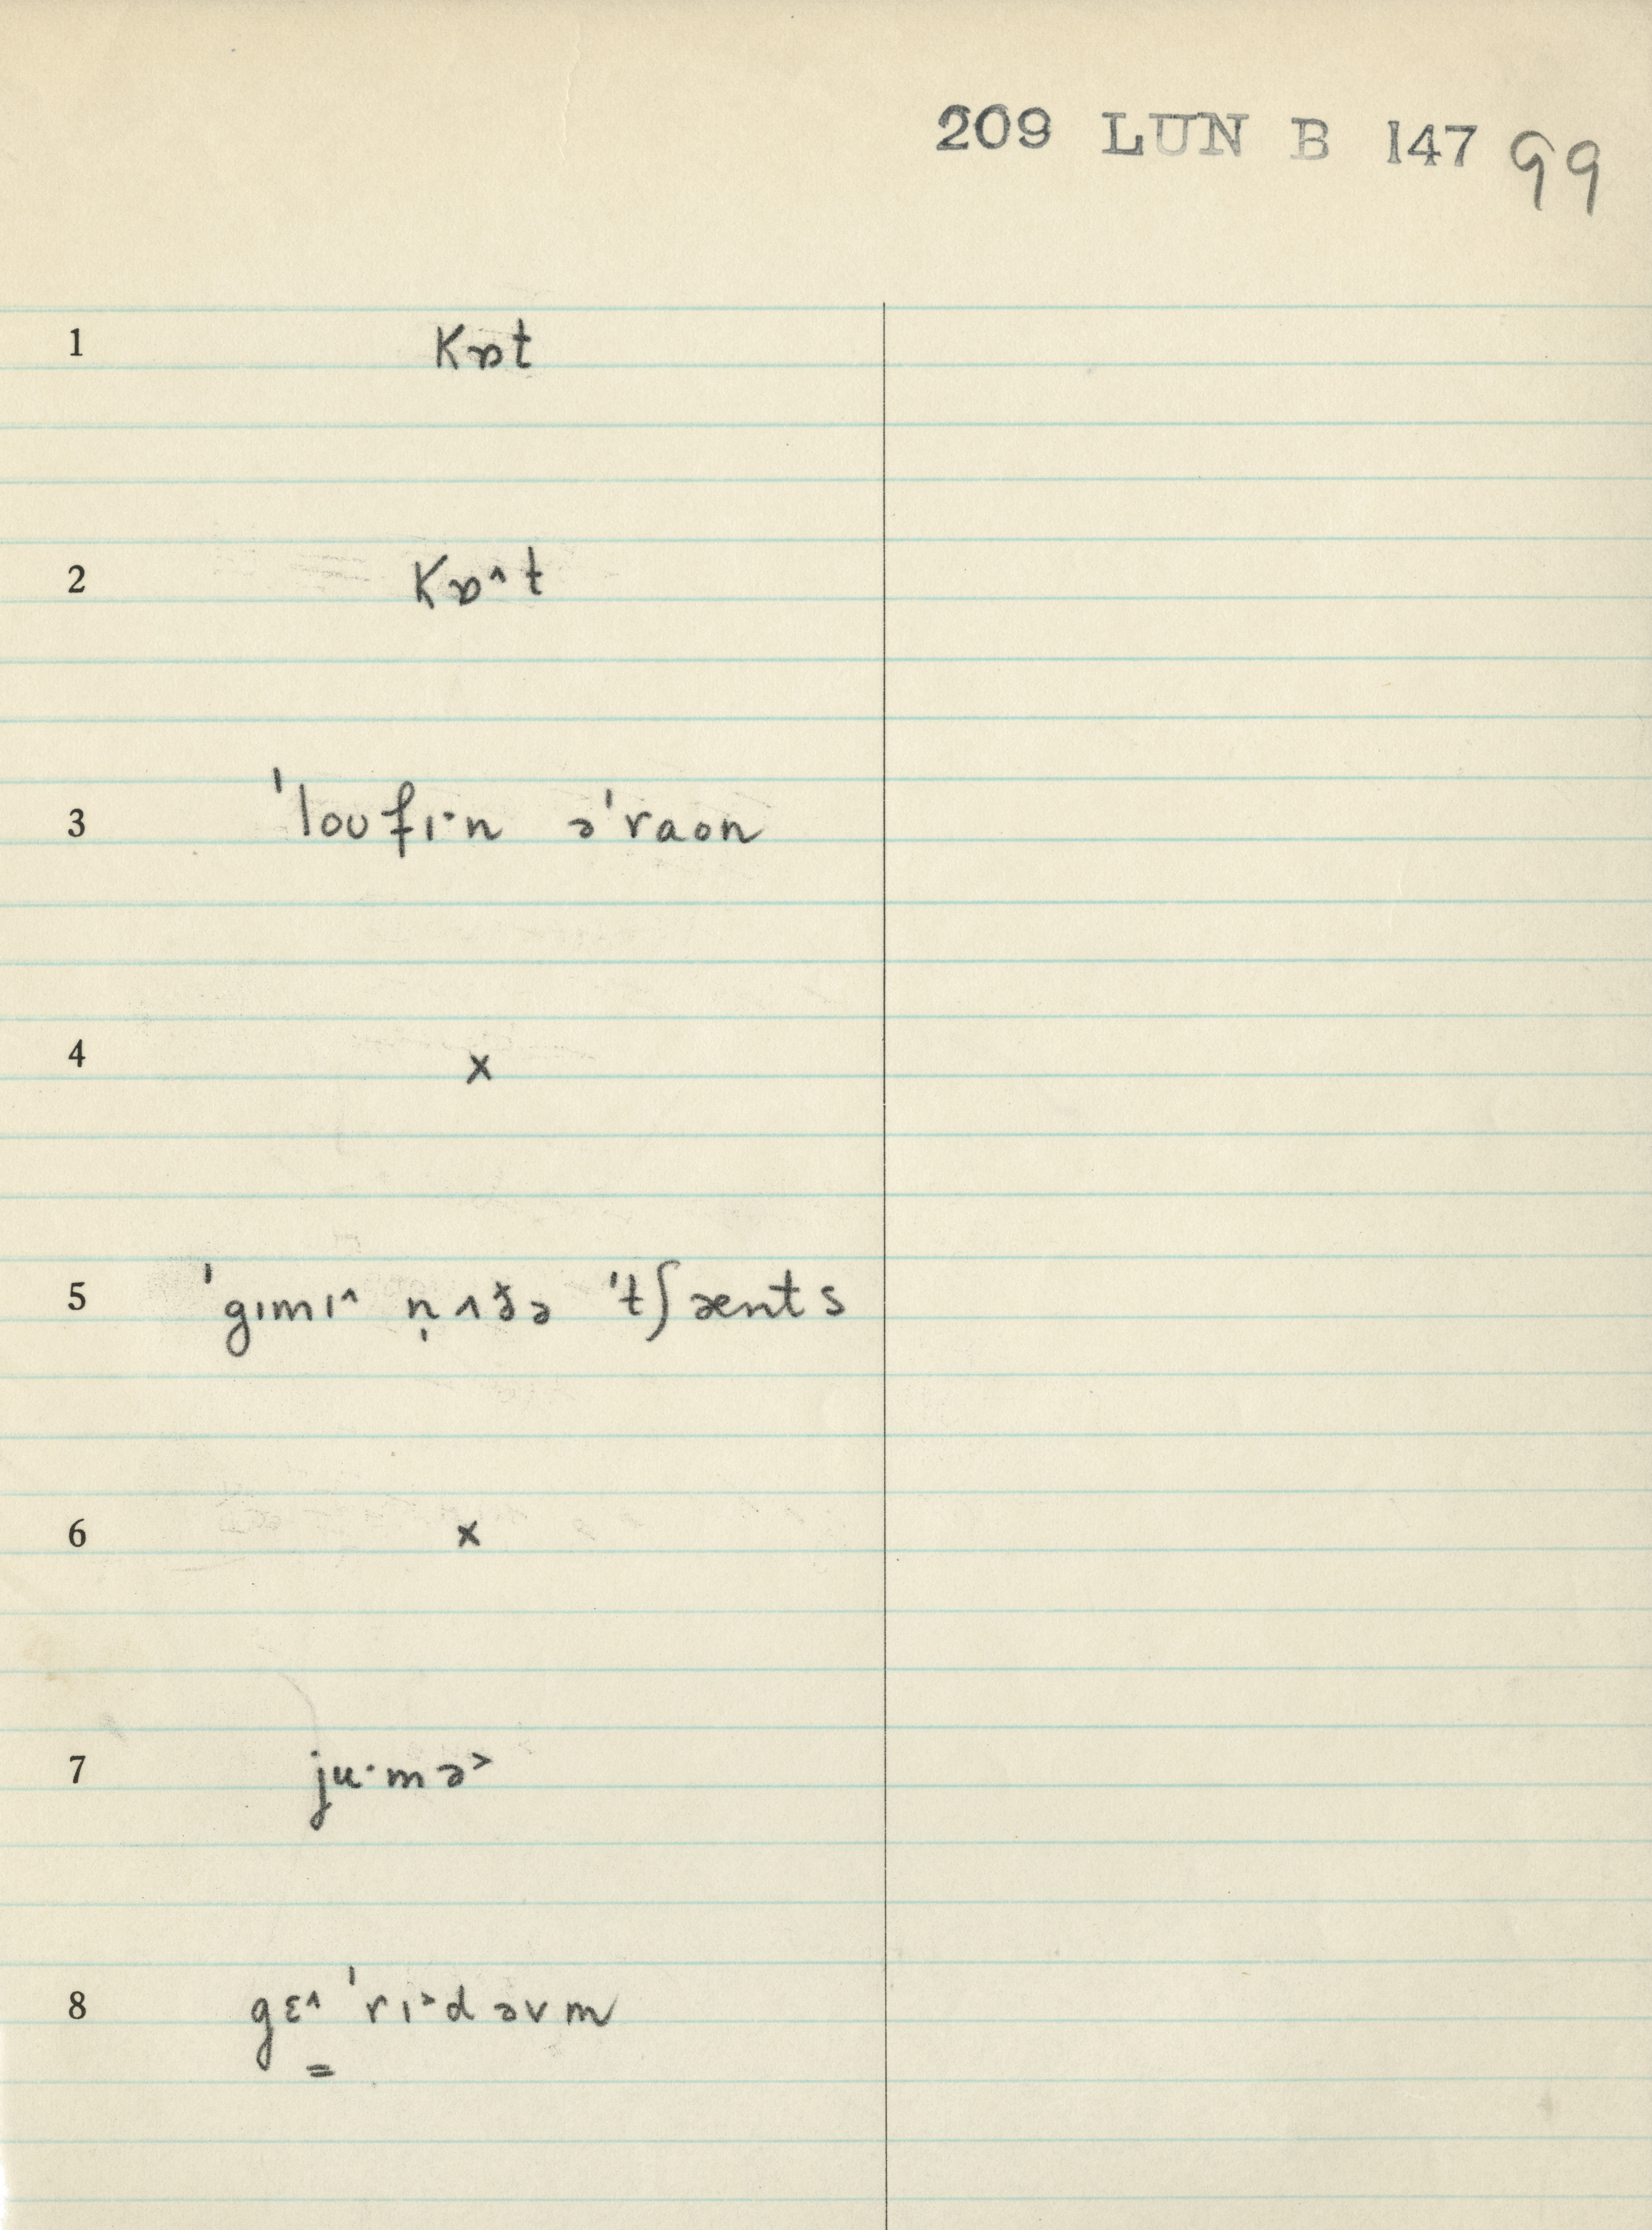 209 LUN B 147 99
1 kɒt
2 kɒ^t
3 ˈloʊfɪ·n əˈraon
4 x
5 ˈgɪmɪ^ n̩ʌðə ˈtʃænts
6 x
7 ju·mə>
8 gɛ^ ˈrɪ>dəvm